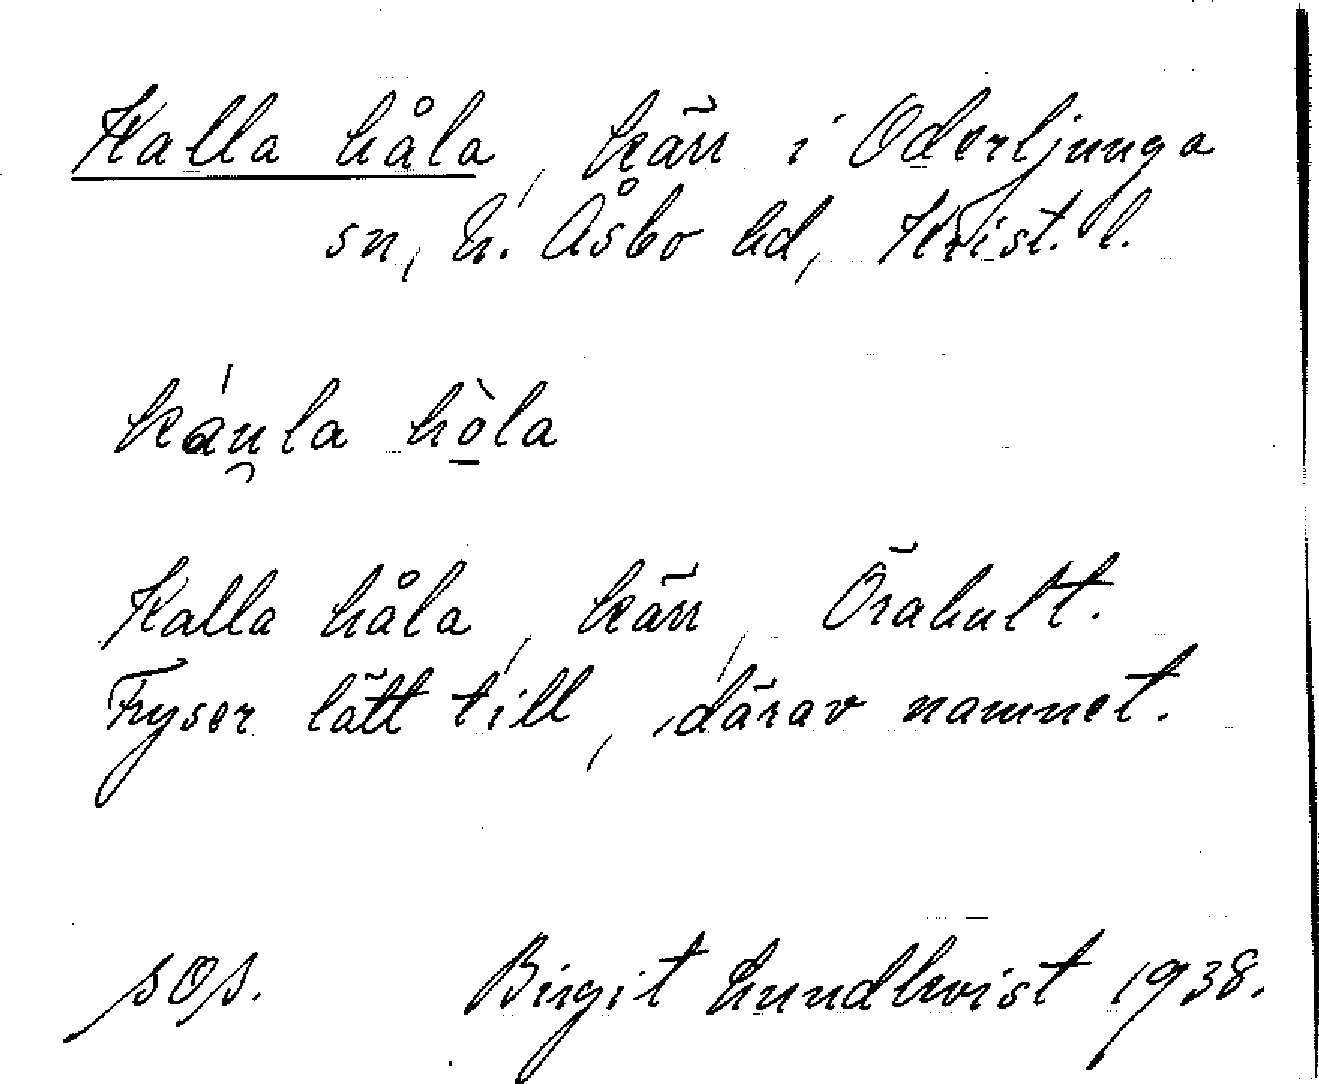 Kalla håla, kärr i Oderljunga
sn, N. Åsbo hd, Krist. l.
káu̯la hò̲la
Kalla håla, kärr, Örahult.
Fryser lätt till, därav namnet.
sOs. Birgit Lundkvist 1938.